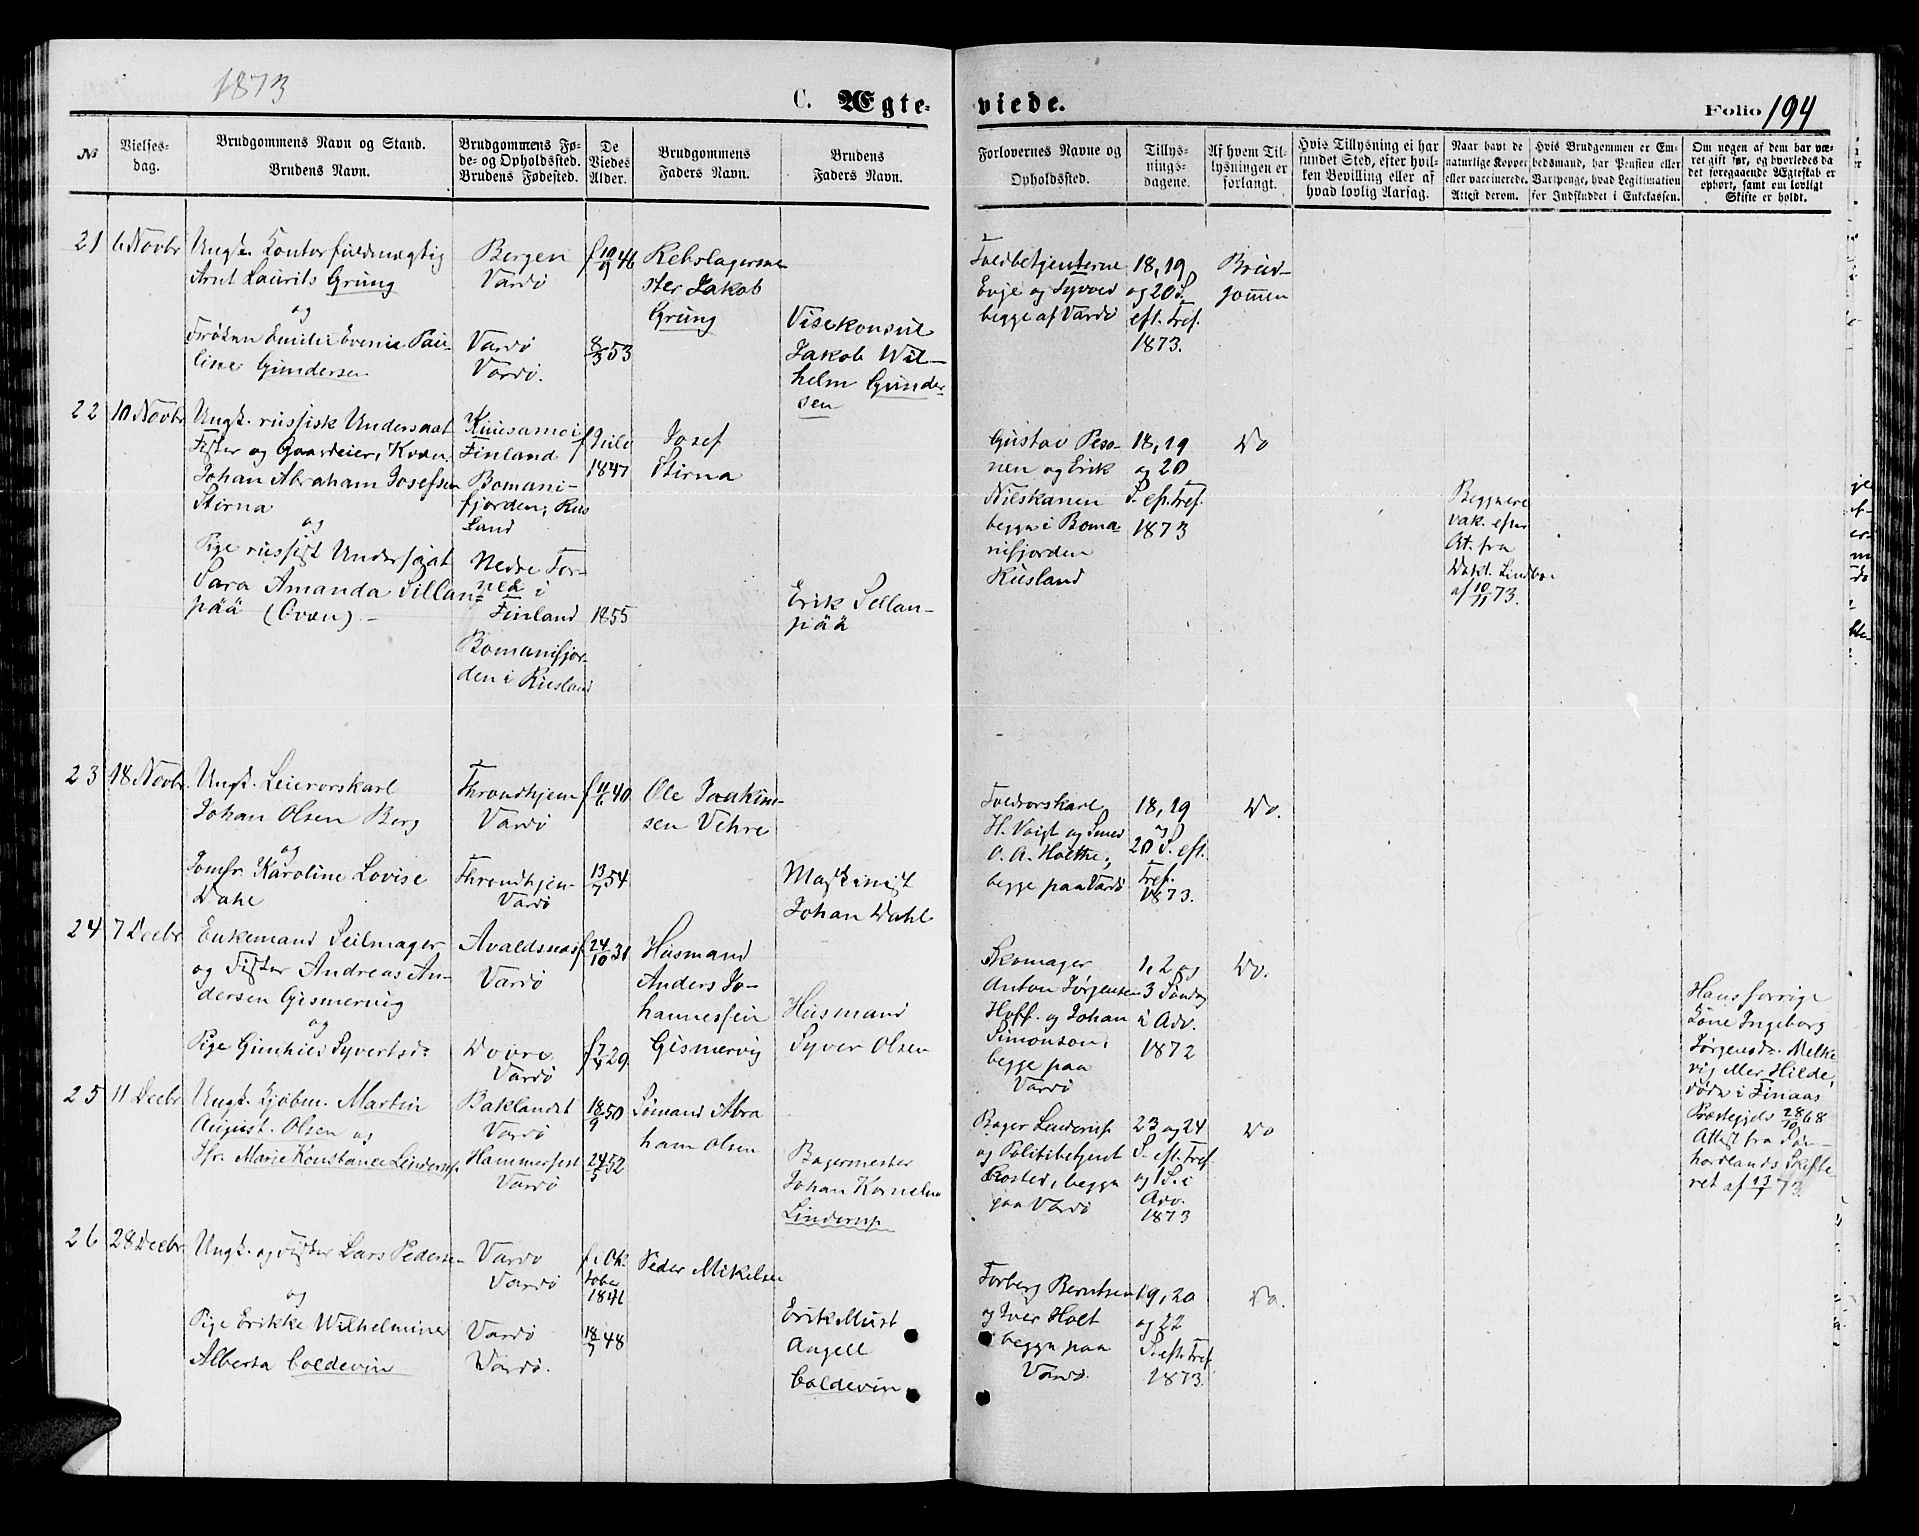 1873
C. Ægte-
viede.
Folio 194
№
Vielses-
dag.
Brudgommens Navn og Stand.
Brudens Navn.
Brudgommens Fø-
de- og Opholdssted.
Brudens Fødested.
De
Viedes
Alder.
Brudgommens
Faders Navn.
Brudens
Faders Navn.
Forlovernes Navne og
Opholdssted.
Tillys-
nings-
dagene.
Af hvem Til-
lysningen er
forlangt.
Hvis Tillysning ei har
fundet Sted, efter hvil-
ken Bevilling eller af
hvad lovlig Aarsag.
Naar havt de
naturlige Kopper
eller vaccinerede.
Attest derom.
Hvis Brudgommen er Em-
bedsmand, har Pension eller
Vartpenge, hvad Legitimation
for Indskuddet i Enkekassen.
Om nogen af dem har væ-
ret gift før, og hvorledes da
det foregaaende Ægteskab er
ophørt, samt om lovligt
Skifte er holdt.
21
6 Novbr
Ungk. Kontorfuldmægtig
Arnt Laurits Grung
og
Frøken Emilie Evenia Pau-
line Gundersen
Bergen
Vardö
Vardö
Vardö.
f 10/9 46
8/3 53
Rebslagerme
ster Jakob
Grung
Visekonsul
Jakob Wil-
helm Gunder-
sen
Toldbetjenterne
Evje og Syvved
begge af Vardö
18, 19
og 20 S.
eft. Tref.
1873.
Brud-
gommen
22
10 Novbr
Ungk. russisk Undersaat
Fisker og Gaardeier, Kvæn
Johan Abraham Josefsen
Stirna
og
Pige russisk Undersaat
Sara Amanda Sillan-
pää (Qvæn) -
Kuusamo i
Finland
Bomani-
fjorden, Rus
land
Nedre Tor-
neå i
Finland
Bomanifjor-
den i Rusland
f Juli
1847
1855
Josef
Stirna
Erik Sellan-
pää
Gustav Peso-
nen og Erik
Nilskanen
begge i Boma
nifjorden
Rusland
18, 19
og 20
S. eft. Tref.
1873
Do
Beggvere
vak. efter
At. fra
Dokt. Lindboe
af 10/11 73.
23
18 Novbr.
Ungk. Leiervorskarl
Johan Olsen Berg
og
Jomfr. Karoline Lovise
Dahl
Throndhjem
Vardö
Throndhjem
Vardö
f 11/6 40
13/7 54
Ole Joakim-
sen Vehre
Maskinist
Johan Dahl
H. Voigt og Smed
O. A. Holthe,
begge paa Vardö
18, 19
og
20 S. eft.
Tref.
1873.
Do.
24
7 Decbr
Enkemand Seilmager
og Fisker Andreas An-
dersen Gismervig
og
Pige Gunhild Syvertsd:
Avaldsnæs
Vardö
Dovre
Vardö
f 24/10 31
f 7/4 29
Husmand
Anders Jo-
hannessen
Gismervig
Husmand
Syver Olsen
Skomager
Anton Jørgensen
Hoff. og Johan
Simonsen,
begge paa
Vardö
1, 2 og
3 Søndag
i Adv.
1872
Do.
Hans forrige
Kone Ingeborg
Jørgensd. Melke
vig
døde i Finaas
Præstegjeld 28/10 68
Attest fra Søn-
hordlands Skifte-
ret af 13/1 73.
25
11 Decbr
Ungk. Kjøbm. Martin
August. Olsen og
Jfr. Marie Konstance Linderup
Baklandet
Vardö
Hammerfest
Vardö
18/9 50
24/5 52
Sømand Abra
ham Olsen
Bagermester
Johan Kornelius
Linderup
Bager Linderup
og Politibetjent
Rosted, begge
paa Vardö
23 og 24
S. eft. Tref.
og 1 S. i
Adv.
1873
Do
26
28 Decbr
Ungk. og Fisker Lars Pedersen
og
Pige Erikke Wilhelmine
Alberta Coldevin
Vardö
Vardö
Vardö
Vardö.
f. Ok-
tober
1841
18/7 48
Peder Mikelsen
Erik Must
Angell
Coldevin
Torberg Berntsen
og Iver Holt
begge paa
Vardö
19, 20
og 22
S. eft. Tref.
1873.
Do.